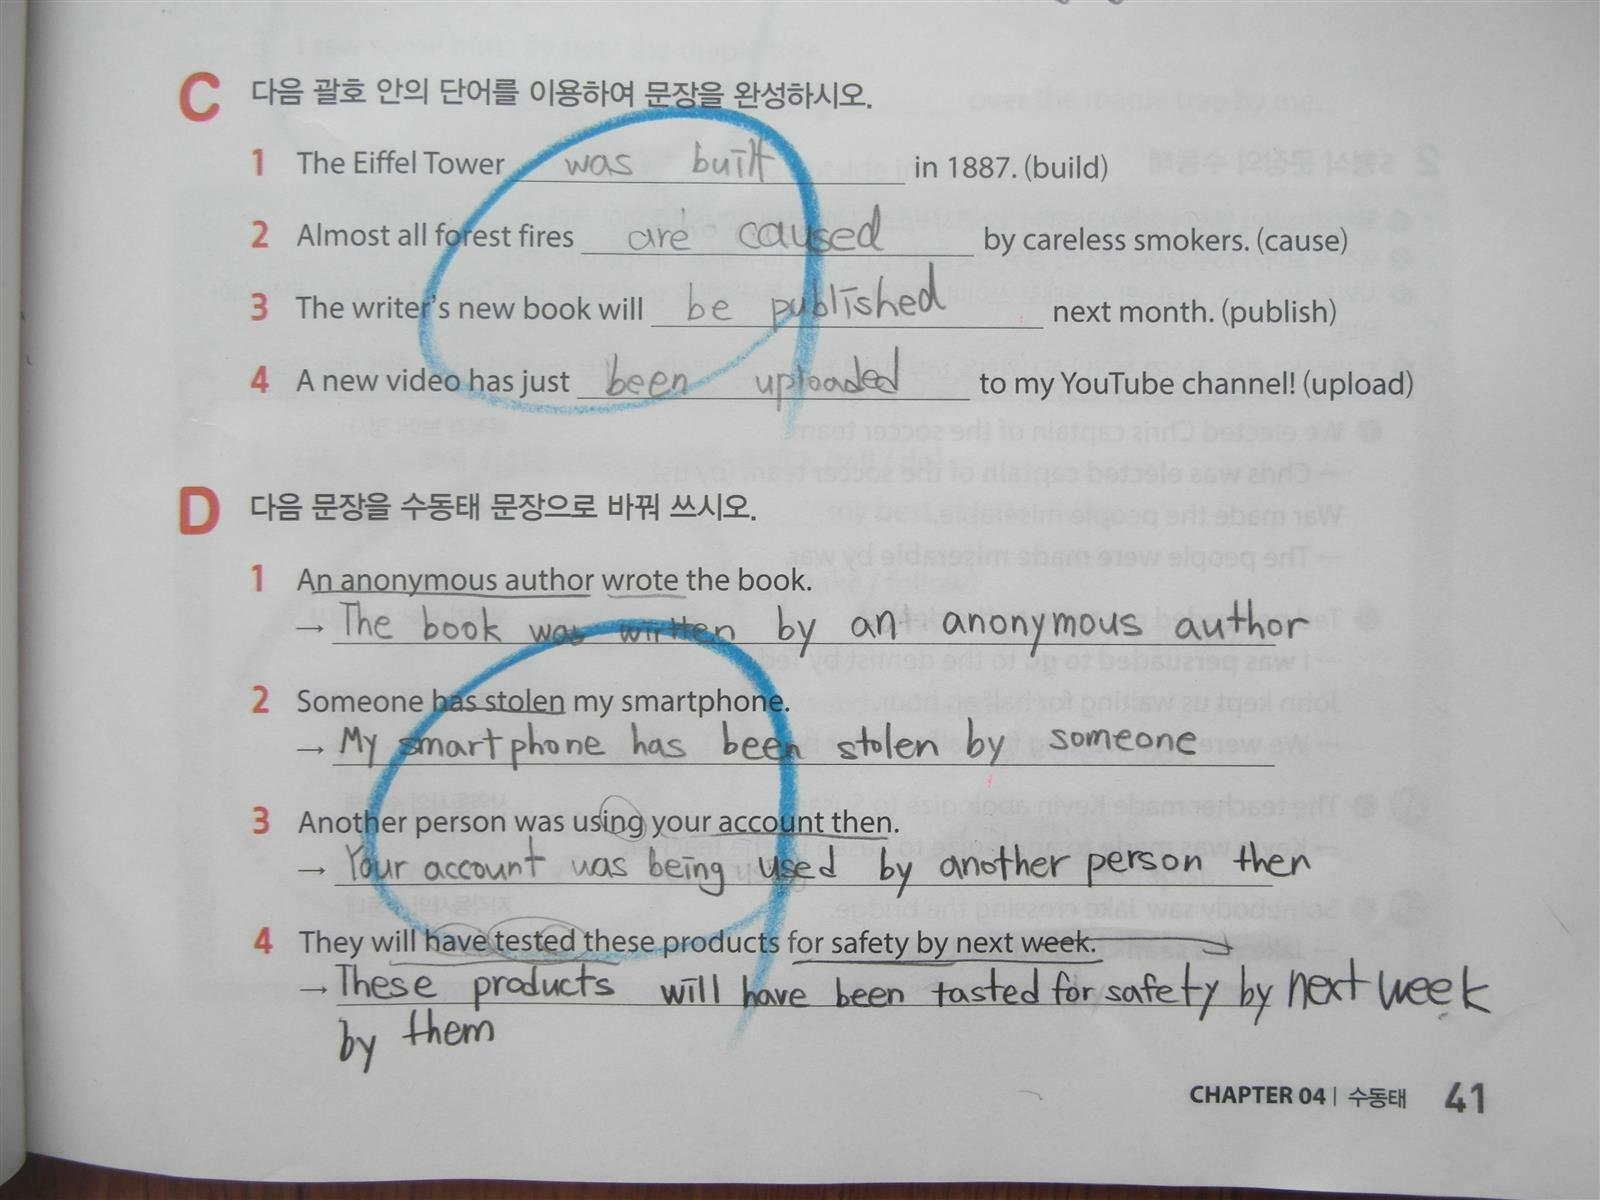 C 다음 괄호 안의 단어를 이용하여 문장을 완성하시오.
1 The Eiffel Tower was built in 1887. (build)
2 Almost all forest fires are caused by careless smokers. (cause)
3 The writer's new book will be published next month. (publish)
4 A new video has just been uploaded to my YouTube channel! (upload)
D 다음 문장을 수동태 문장으로 바꿔 쓰시오.
1 An anonymous author wrote the book.
→ The book was wirtten by an anonymous author
2 Someone has stolen my smartphone.
→ My smartphone has been stolen by someone
3 Another person was using your account then.
→ Your account was being used by another person then
4 They will have tested these products for safety by next week.
→ These products will have been tasted for safety by next week
by them
CHAPTER 04 | 수동태 41